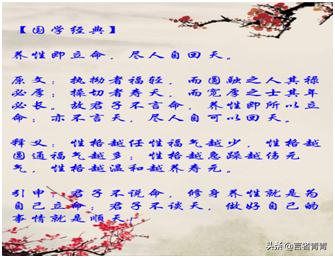 【国学经典】
养性即立命，尽人自回天。
原文：执拗者福轻，而圆融之人其禄
必厚；操切者寿夭，而宽厚之士其年
必长。故君子不言命，养性即所以立
命；亦不言天，尽人自可以回天。
释义：性格越任性福气越少，性格越
圆通福气越多；性格越急躁越伤元
气，性格越温和越养寿元。
引申：君子不说命，修身养性就是为
自己立命；君子不谈天，做好自己的
事情就是顺天！
头条@言者菁菁